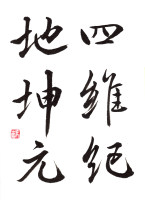 四維絕
地坤元